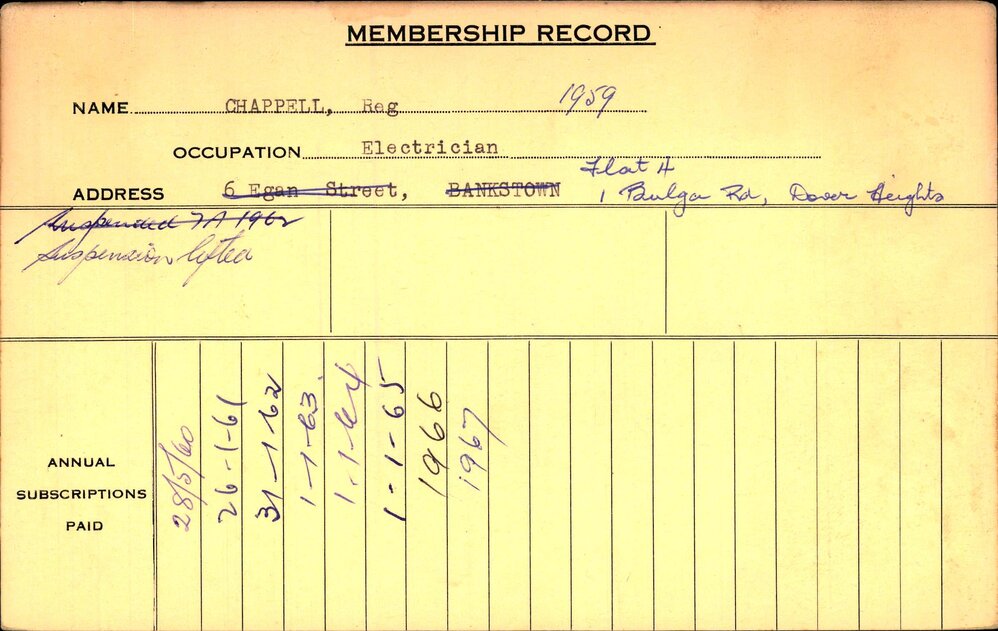 MEMBERSHIP RECORD
NAME CHAPPELL, Reg 1959
OCCUPATION Electrician
Flat A
ADDRESS 6 Egan Street, BANKSTOWN 1 Bulga Rd, Dover Heights
Suspended 1962
Suspension lifted
ANNUAL SUBSCRIPTIONS PAID
28/5/60
26-1-61
31-1-62
1-1-63.
1-1-64
1-1-65
1966
1967